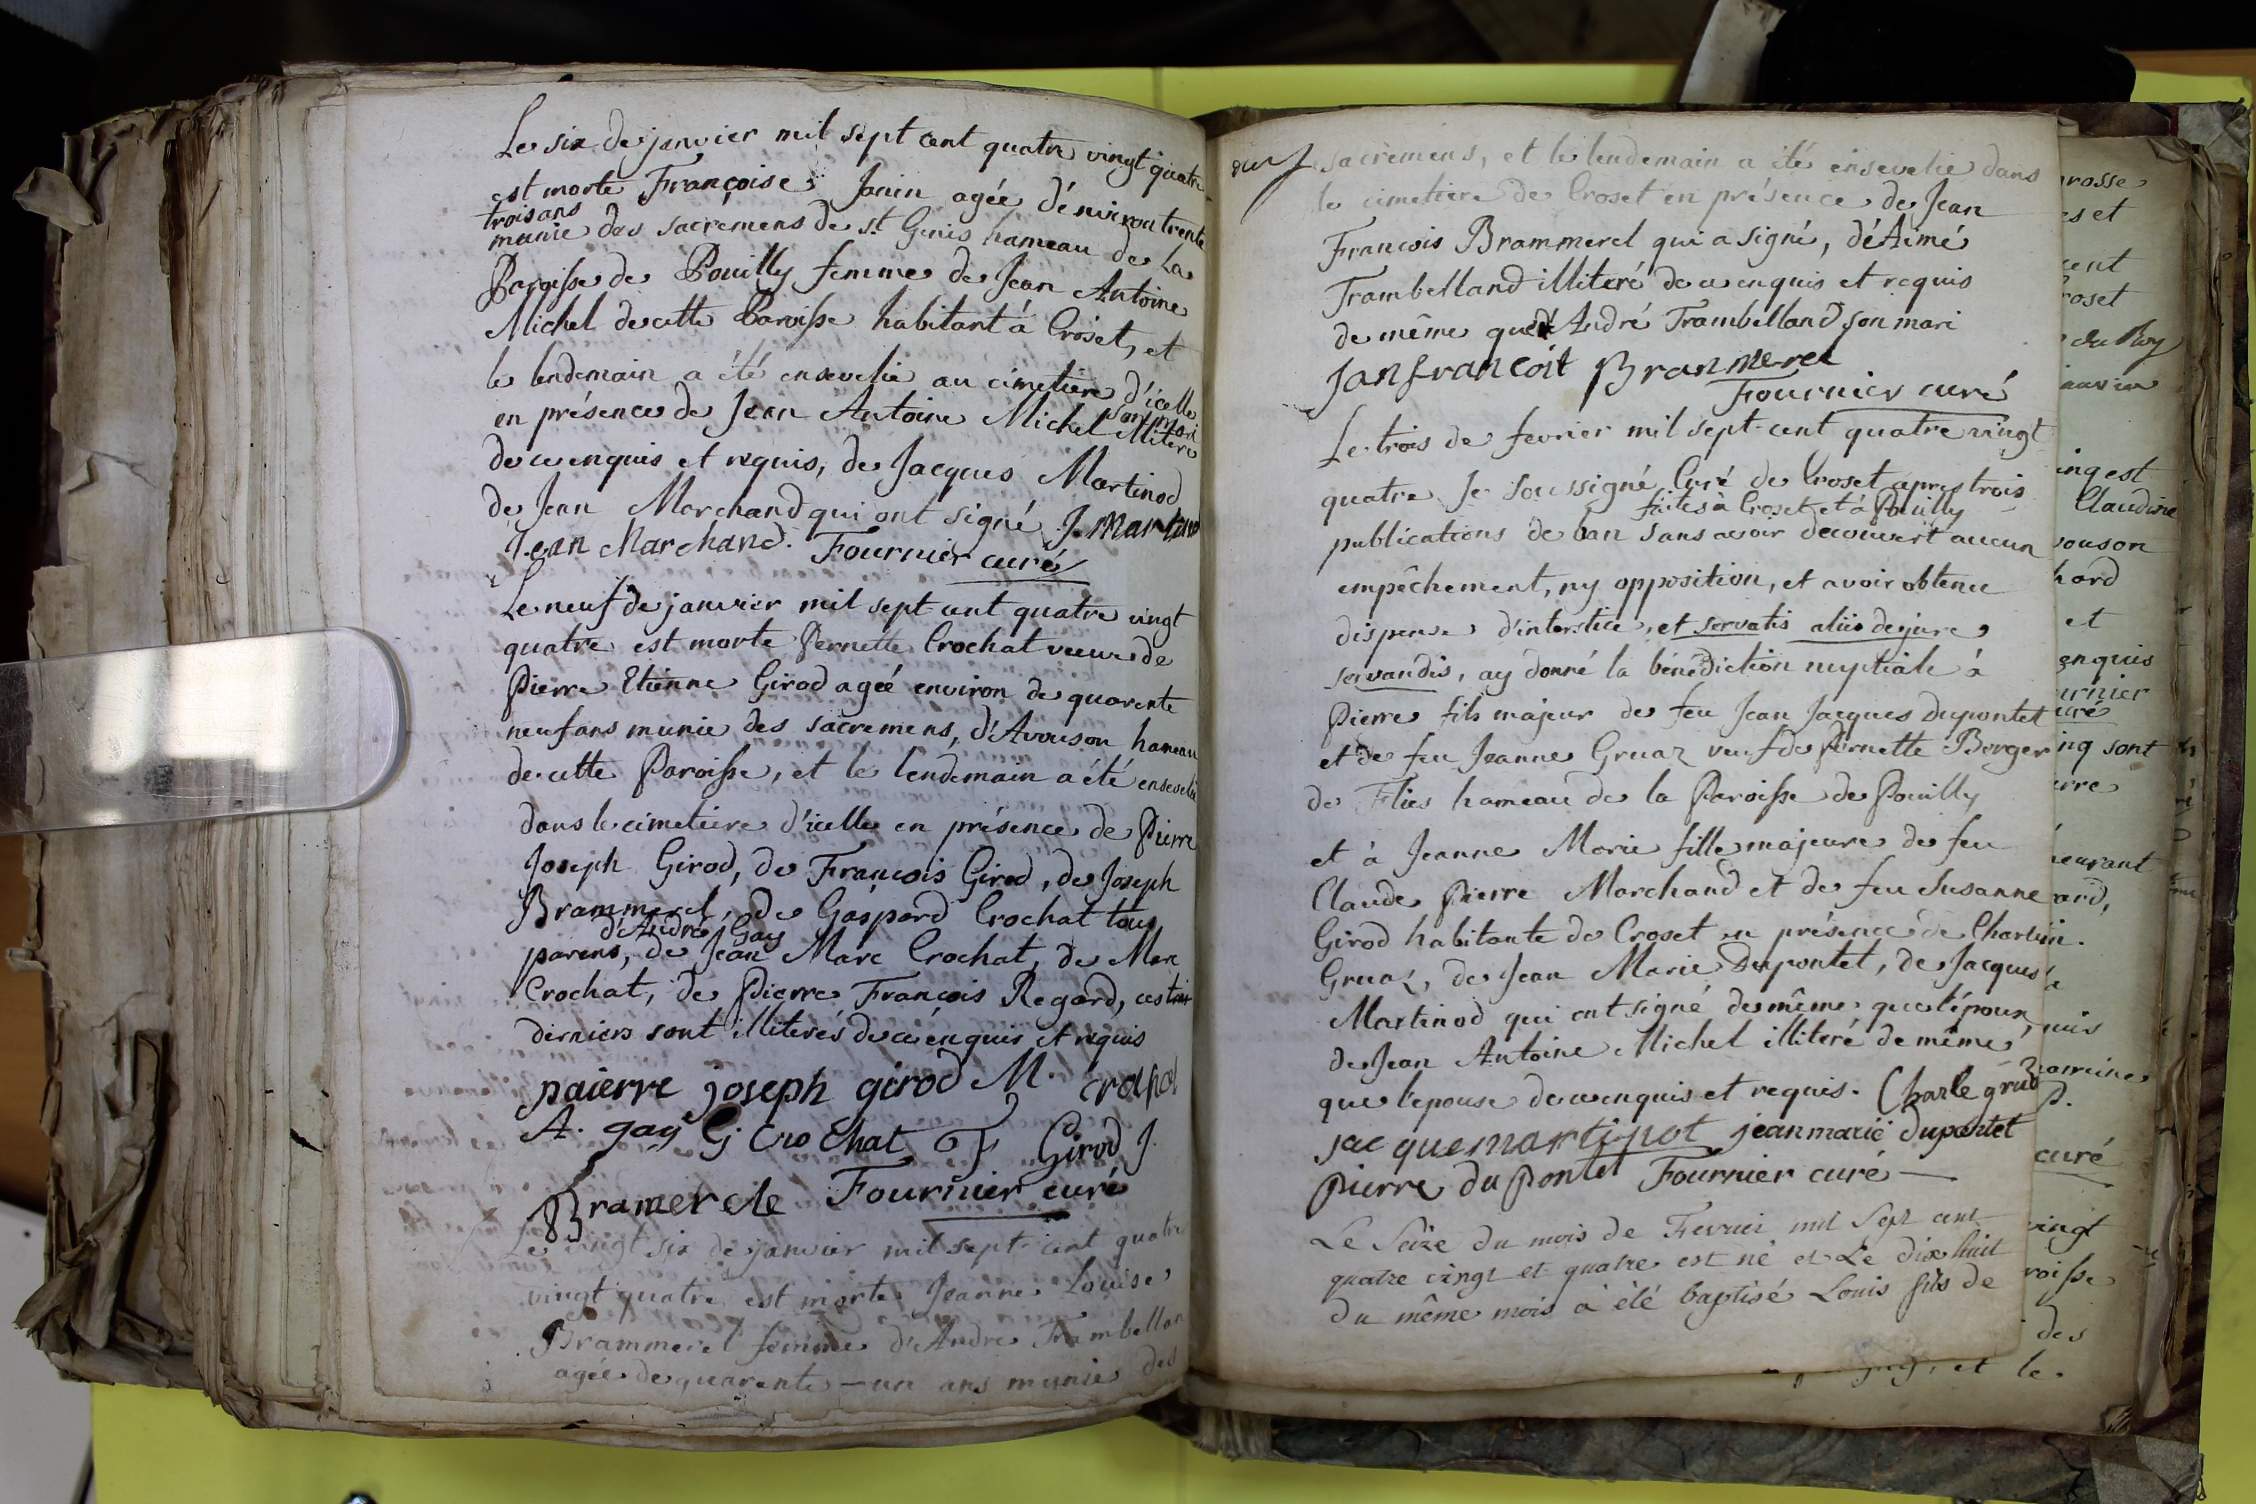 Le six de janvier mil sept cent quatre vingt quatre
est morte Françoise Janin agée d'environ trente
trois ans
munie des sacremens de st Genis hameau de la
Paroisse de Pouilly femme de Jean Antoine
Michel de cette Paroisse habitant à Croset, et
le lendemain a été ensevelie au cimetiere d'icelle
en présence de Jean Antoine Michel son mari illiteré
de ce enquis et requis, de Jacques Martinod
de Jean Marchand qui ont signé J. Martinod
Jean Marchand. Fournier curé
Le neuf de janvier mil sept cent quatre vingt
quatre est morte Pernette Crochat veuve de
Pierre Etienne Girod agée environ de quarente
neuf ans munie des sacremens, d'Avouson hameau
de cette Paroisse, et le lendemain a été ensevelie
dans le cimetiere d'icelle en présence de Pierre
Joseph Girod, de François Girod, de Joseph
Brammerel, de Gaspard Crochat tous
d'André Gay
parens, de Jean Marc Crochat, de Marc
Crochat, de Pierre François Regard, ces trois
derniers sont illiterés de ce enquis et requis
paierre joseph girod M. crochat
A. gay G crochat F Girod J.
Bramerele Fournier curé
Le vingt six de janvier mil sept cent quatre
vingt quatre est morte Jeanne Louise
Brammerel femme d'André Trambelland
agée de quarente-un ans munie des
sacremens, et le lendemain a été ensevelie dans
le cimetiere de Croset en présence de Jean
François Brammerel qui a signé, d'Aimé
Trambelland illiteré de ce enquis et requis
de même que d'André Trambelland son mari
Janfrancoit Branmerel
Fournier curé
Le trois de fevrier mil sept cent quatre vingt
quatre Je soussigné Curé de Croset apres trois
faites à Croset et à Pouilly
publications de ban sans avoir decouvert aucun
empêchement, ny opposition, et avoir obtenu
dispense d'interstice, et servatis aliis de jure
servandis, ay donné la bénédiction nuptiale à
Pierre fils majeur de feu Jean Jacques Dupontet
et de feu Jeanne Gruaz veuf de Pernette Berger
de Flies hameau de la Paroisse de Pouilly
et à Jeanne Marie fille majeure de feu
Claude Pierre Marchand et de feu Susanne
Girod habitante de Croset en présence de Charle
Gruaz, de Jean Marie Dupontet, de Jacques
Martinod qui ont signé de même que l'époux,
de Jean Antoine Michel illiteré de même
que l'epouse de ce enquis et requis. Charle gruaz
jacque martinot jean marie dupontet
pierre du pontet Fournier curé
Le Seize du mois de Fevrier mil Sept cent
quatre vingt et quatre est né et Le dix huit
du même mois a été baptisé Louis fils de
es et
Claudine
et
enquis
curé
inq sont
curé
vingt
des
et le